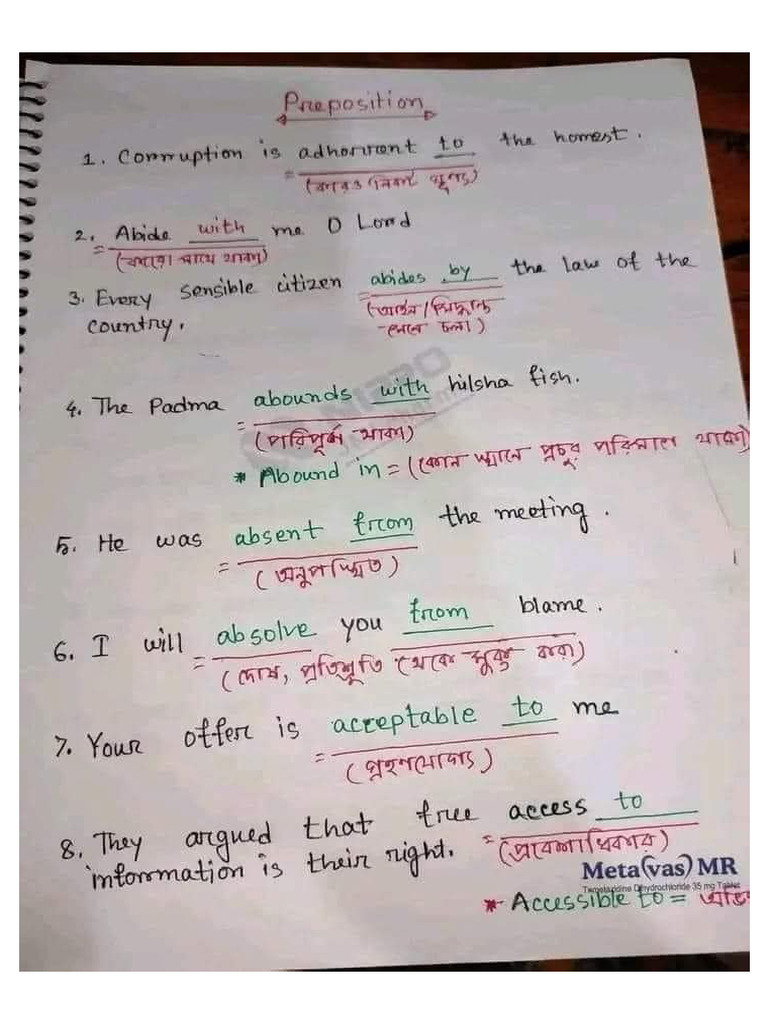 Preposition
1. Corruption is adhorrent to the honest.
= (কারও নিকট ঘৃণ্য)
2. Abide with me O Lord
= (কারো সাথে থাকা)
3. Every sensible citizen abides by the law of the
(আইন/সিদ্ধান্ত
country.
মেনে চলা)
4. The Padma abounds with hilsha fish.
= (পরিপূর্ণ থাকা)
* Abound in = (কোন স্থানে প্রচুর পরিমাণে থাকা)
5. He was absent from the meeting.
= (অনুপস্থিত)
6. I will absolve you from blame.
= (দোষ, প্রতিশ্রুতি থেকে মুক্ত করা)
7. Your offer is acceptable to me
= (গ্রহণযোগ্য)
8. They argued that free access to
= (প্রবেশাধিকার)
information is their right.
Meta(vas) MR
Dihydrochloride 35 mg Tablet
* Accessible to =